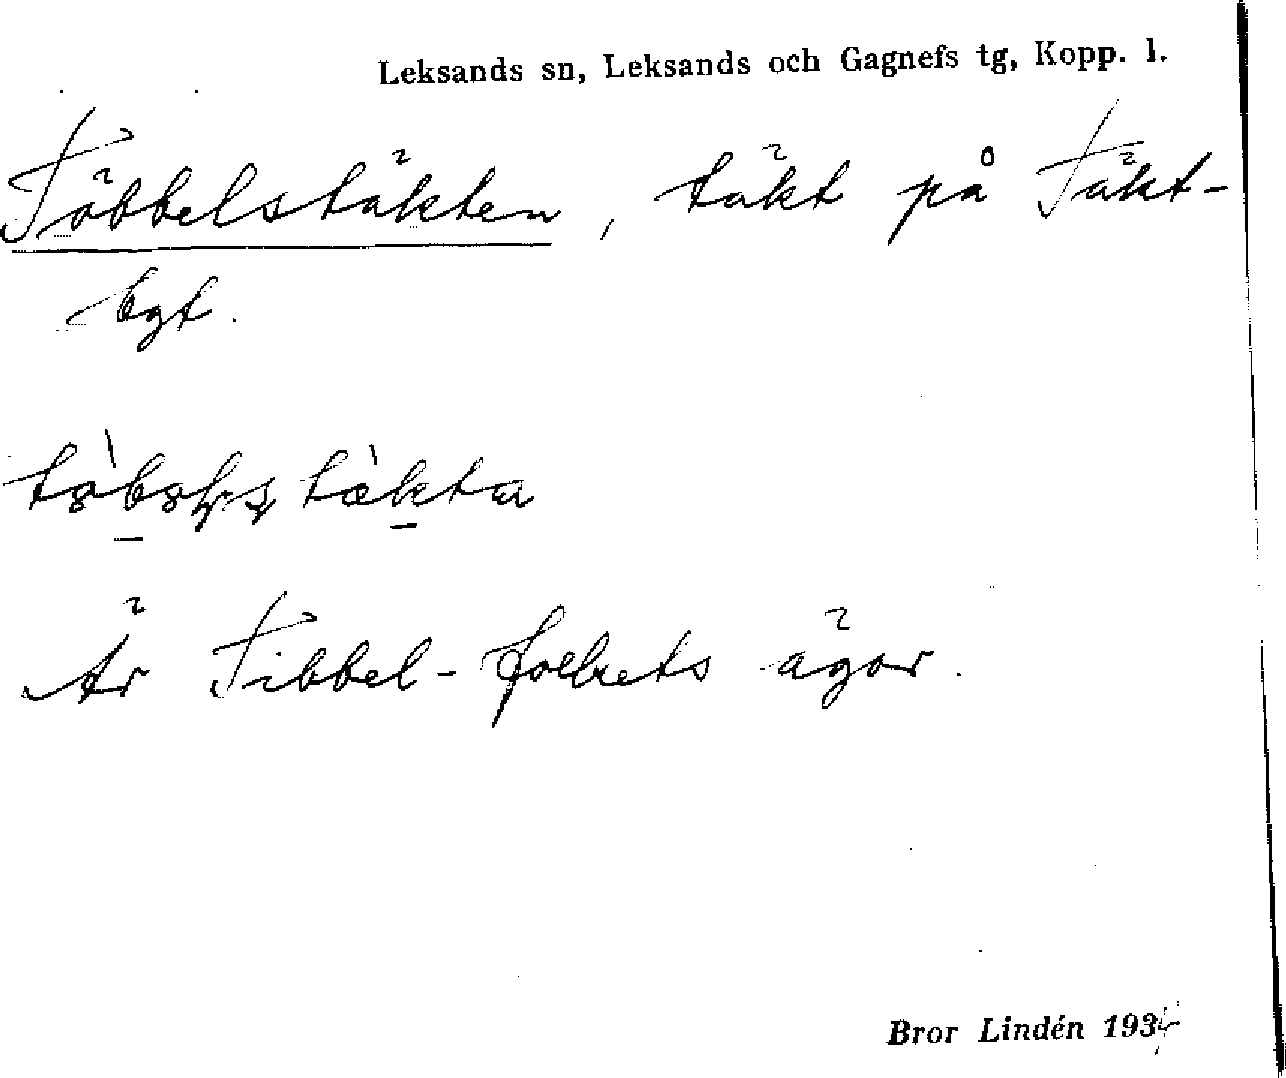 Leksands sn, Leksands och Gagnefs tg, Kopp. l.
Többelstäkten, täkt på Täkt-
bgt.
Är Tibbel-folkets ägor.
Bror Lindén 1934